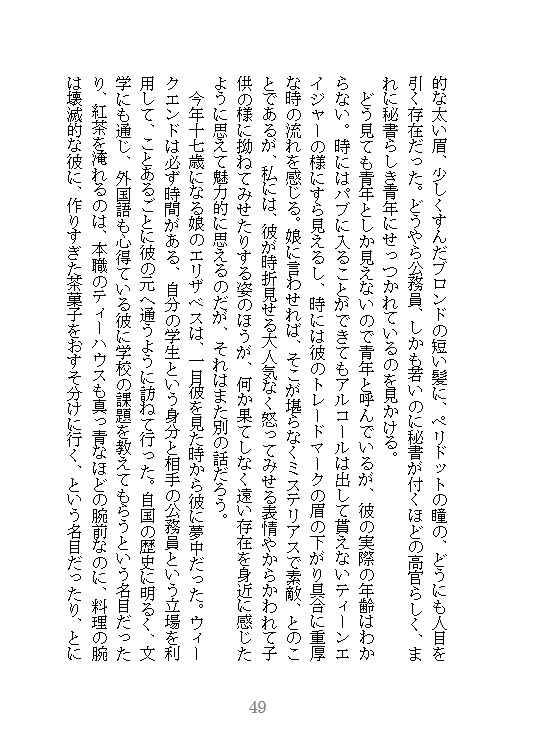 的な太い眉、少しくすんだブロンドの短い髪に、ペリドットの瞳の、どうにも人目を
引く存在だった。どうやら公務員、しかも若いのに秘書が付くほどの高官らしく、ま
れに秘書らしき青年にせっつかれているのを見かける。
どう見ても青年としか見えないので青年と呼んでいるが、彼の実際の年齢はわか
らない。時にはパブに入ることができてもアルコールは出して貰えないティーンエ
イジャーの様にすら見えるし、時には彼のトレードマークの眉の下がり具合に重厚
な時の流れを感じる。娘に言わせれば、そこが堪らなくミステリアスで素敵、とのこ
とであるが、私には、彼が時折見せる大人気なく怒ってみせる表情やからかわれて子
供の様に拗ねてみせたりする姿のほうが、何か果てしなく遠い存在を身近に感じた
ように思えて魅力的に思えるのだが、それはまた別の話だろう。
今年十七歳になる娘のエリザベスは、一目彼を見た時から彼に夢中だった。ウィー
クエンドは必ず時間がある、自分の学生という身分と相手の公務員という立場を利
用して、ことあるごとに彼の元へ通うように訪ねて行った。自国の歴史に明るく、文
学にも通じ、外国語も心得ている彼に学校の課題を教えてもらうという名目だった
り、紅茶を淹れるのは、本職のティーハウスも真っ青なほどの腕前なのに、料理の腕
は壊滅的な彼に、作りすぎた茶菓子をおすそ分けに行く、という名目だったり、とに
49